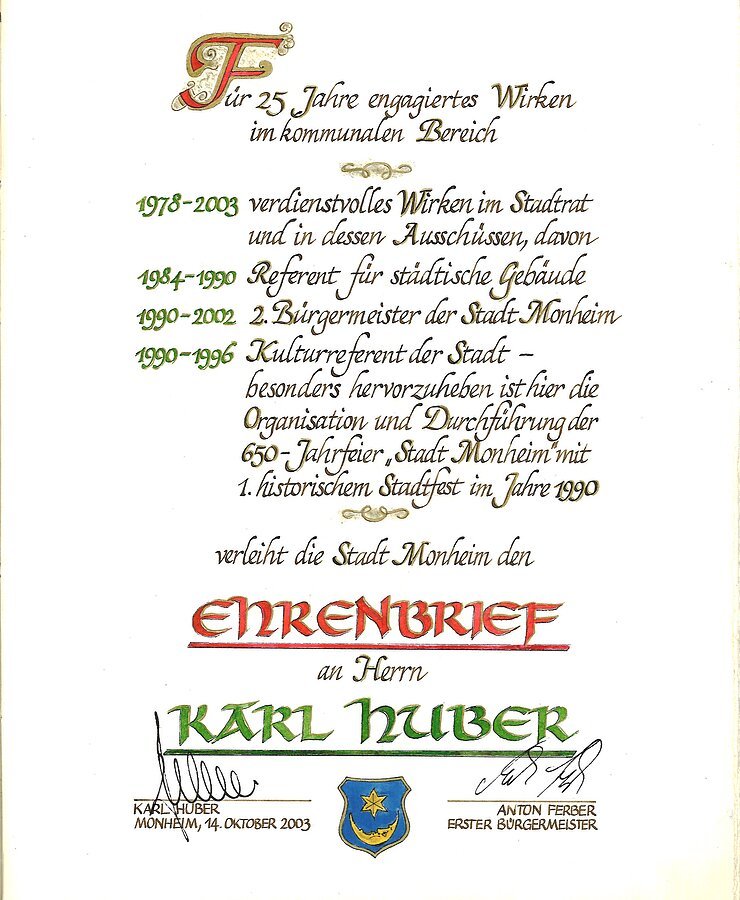 Für 25 Jahre engagiertes Wirken
im kommunalen Bereich
1978-2003 verdienstvolles Wirken im Stadtrat
und in dessen Ausschüssen, davon
1984-1990 Referent für städtische Gebäude
1990-2002 2. Bürgermeister der Stadt Monheim
1990-1996 Kulturreferent der Stadt –
besonders hervorzuheben ist hier die
Organisation und Durchführung der
650-Jahrfeier „Stadt Monheim" mit
1. historischem Stadtfest im Jahre 1990
verleiht die Stadt Monheim den
EHRENBRIEF
an Herrn
KARL HUBER
KARL HUBER
MONHEIM, 14. OKTOBER 2003
ANTON FERBER
ERSTER BÜRGERMEISTER